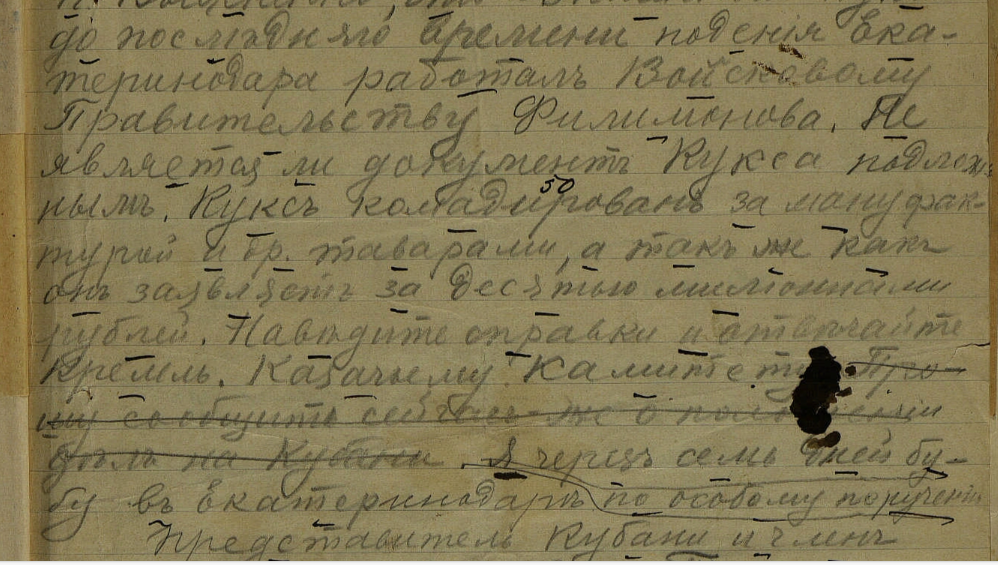 до послѣдняго времени подения Ека-
теринодара работалъ Войсковому
Правительству Филимонова. Не
является ли документъ Кукса подлож-
нымъ. Куксъ командированъ за 50 мануфак-
турой и др. таварами, а такъ же какъ
онъ заявляетъ за десятью милионнами
рублей. Наводите справки и отвѣчайте
Кремль. Казачьему Камитету. Про-
шу сообщить сейчасъ же о положении
дѣлъ на Кубани. Я черезъ семь дней бу-
бу въ Екатеринодаръ по особому поручению
Представитель Кубани и членъ